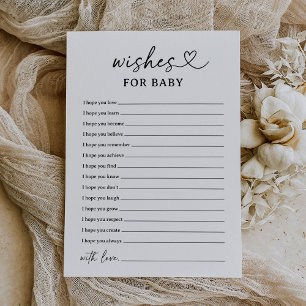 wishes
FOR BABY
I hope you love
I hope you learn
I hope you become
I hope you believe
I hope you remember
I hope you achieve
I hope you find
I hope you know
I hope you don't
I hope you laugh
I hope you grow
I hope you respect
I hope you create
I hope you always
with love,